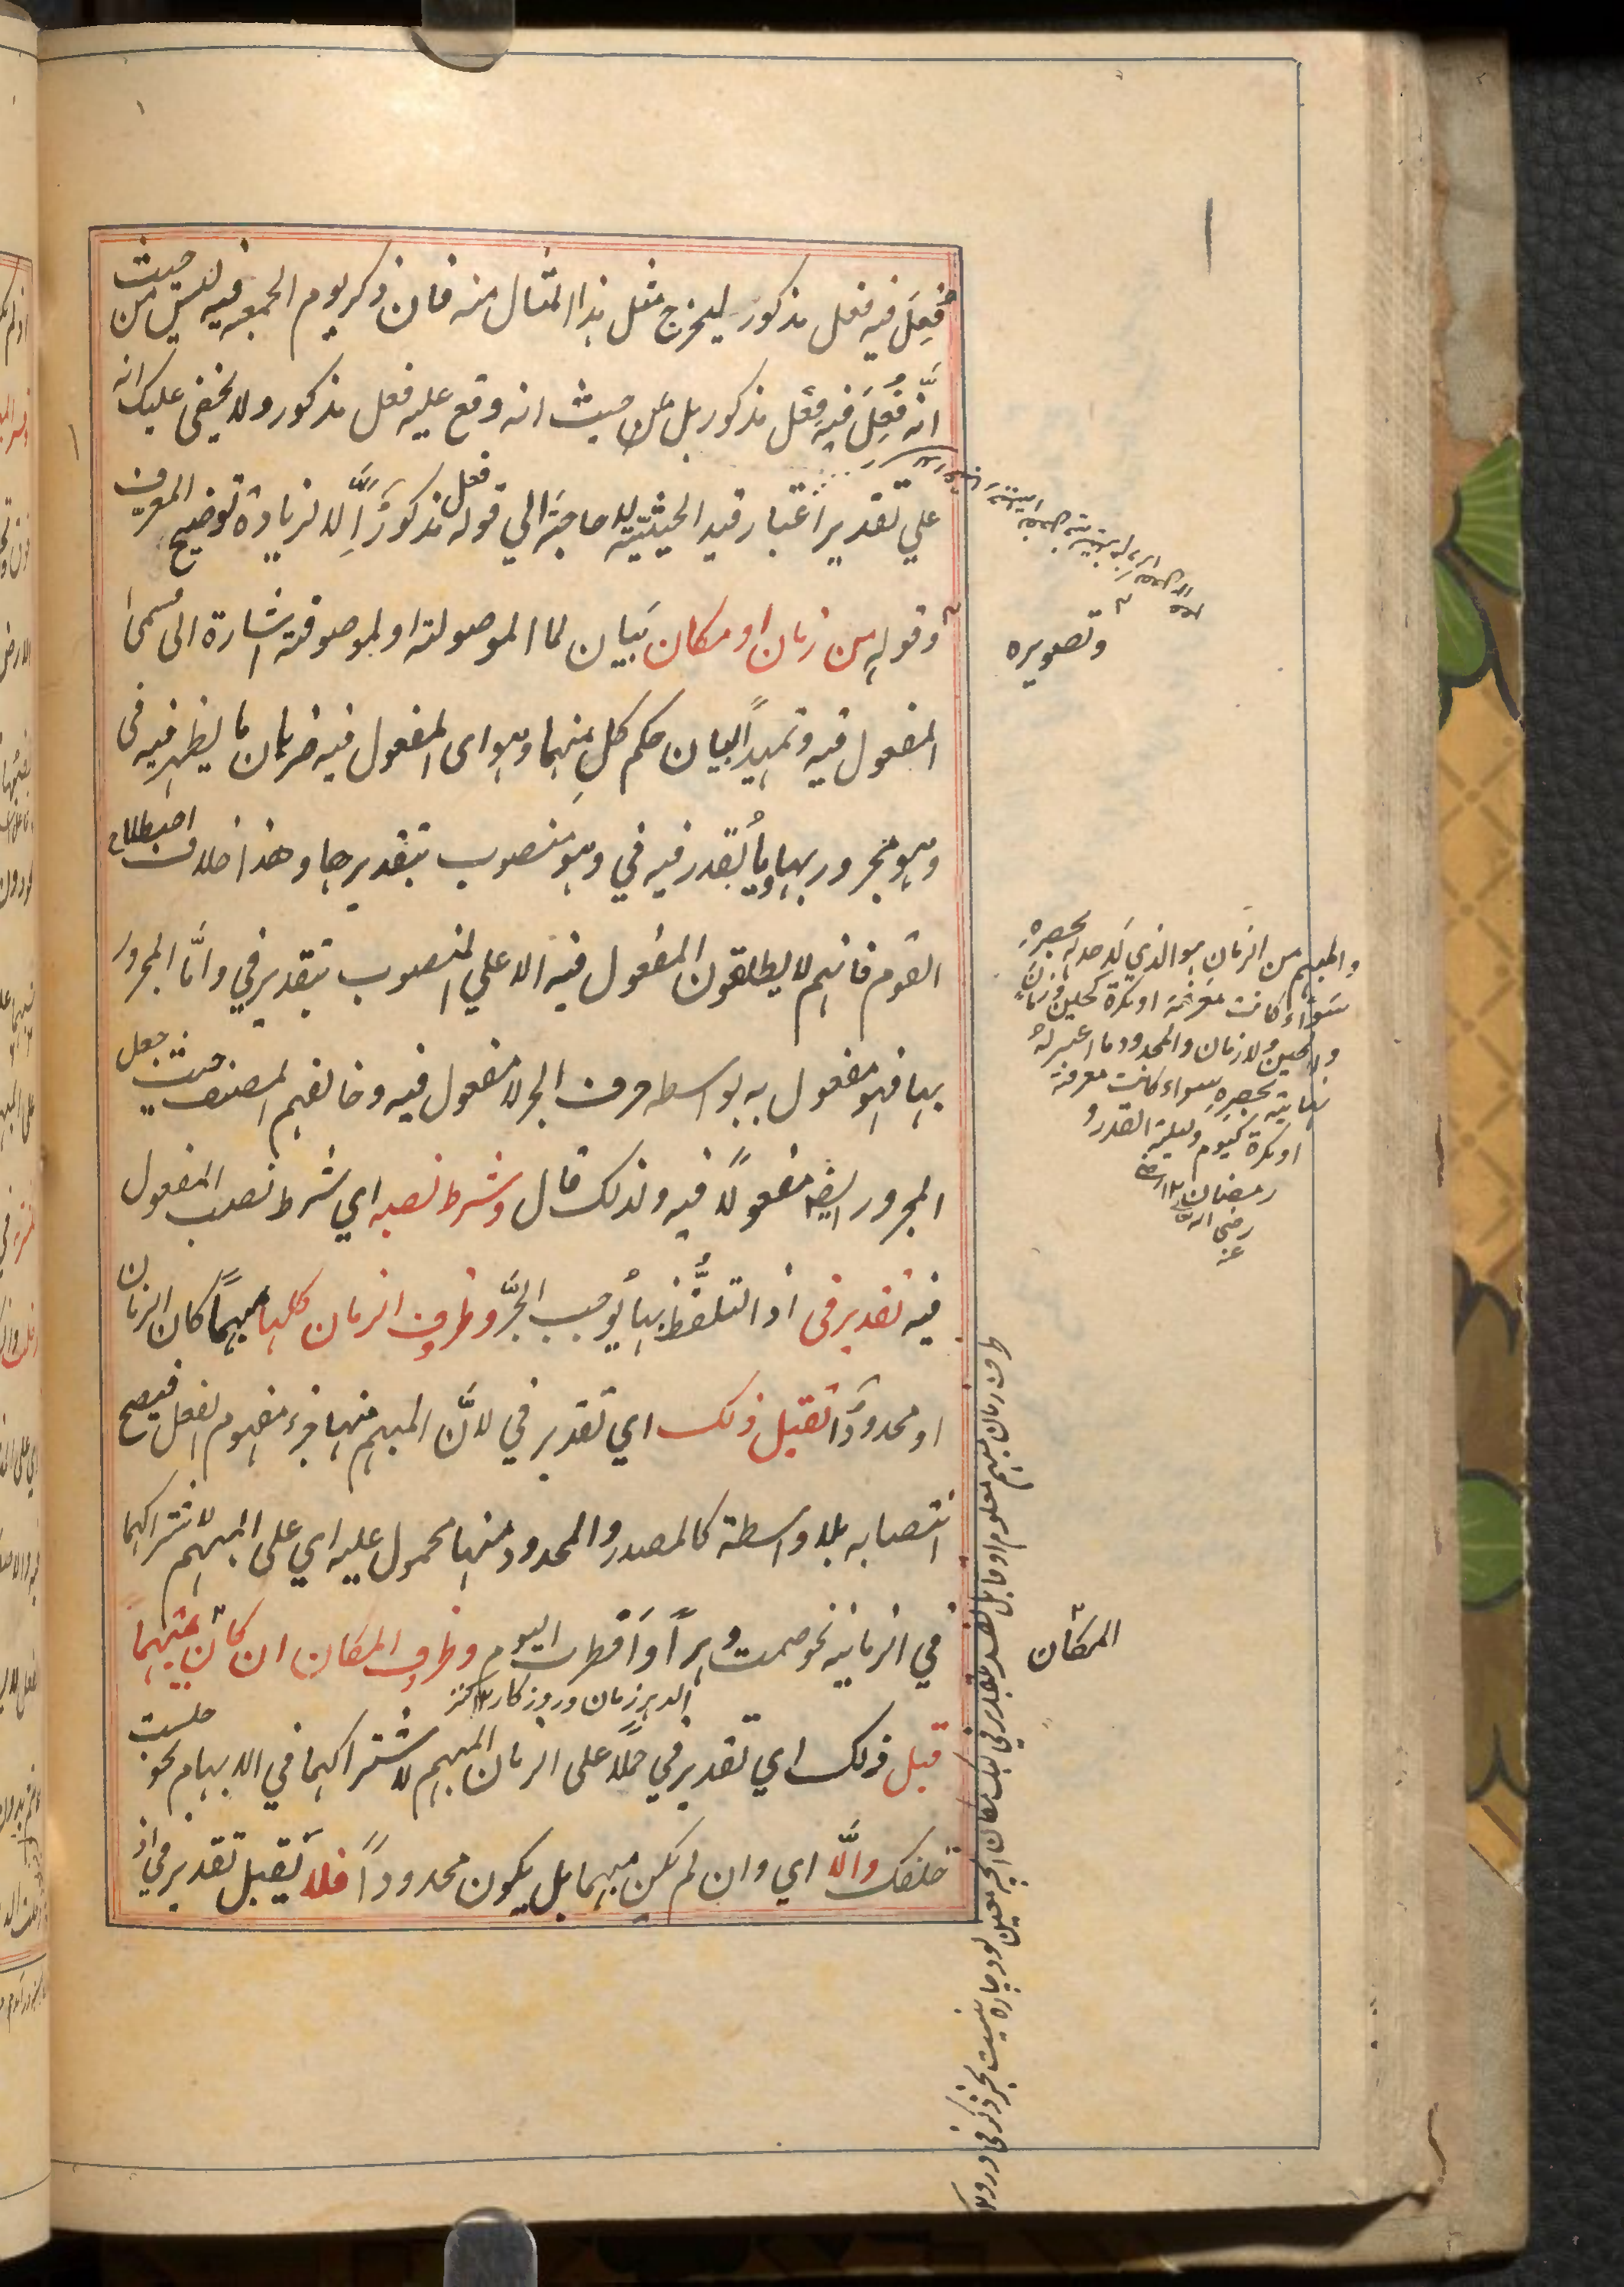 فُعِلَ فيه فعل مذكور ليخرج مثل هذا المثال منه فان ذكر يوم الجمعه فيه ليس من حيث
انّه فُعِلَ فيه فعل مذكور بل من حيث انه وقع عليه فعل مذكور ولا يخفى عليك انه
علي تقدير اعتبار قيد الحيثيه لا حاجة الي قوله فعل مذكور اِلّا لزيادة توضيح المعرف
وقوله من زمان او مكان بَيان لما الموصولة او لموصوفة اشارة الى قسمى
المفعول فيه وتمهيداً لبيان حكم كلِ منهما وهو اى المفعول فيه ضربان ما يظهر فيه فى
وهو مجرور بها وما يُقدر فيه في وهو منصوب بتقديرها وهذا خلاف اصطلاح
القوم فانهم لا يطلقون المفعول فيه الا علي المنصوب بتقدير في وامّا المجرور
بها فهو مفعول به بواسطه حرف الجر لا مفعول فيه وخالفهم المصنف حيث جعل
المجرور ايضا مفعولاً فيه ولذلك قال وشرط نصبه اي شرط نصب المفعول
فيه تقدير فى اذ التلفُّظ بها يُوجب الجرَّ وظروف الزمان كلها مبهماً كان الزمان
او محدوداً تقبل ذلك اي تقدير في لانَّ المبهم منها جزء مفهوم الفعل فيصح
انتصابه بلا واسطة كالمصدر والمحدود منها محمول عليه اي على المبهم لاشتراكهما
في الزمانيه نحو صمت دهراً وافطرت اليوم وظروف المكان ان كان مبهماً
الدهر زمان وروزكار ١٢ كنز
قبل ذلك اي تقدير في حملاً على الزمان المبهم لاشتراكهما في الابهام نحو جلست
خلفك والّا اي وان لم يكن مبهما بل يكون محدوداً فلا يقبل تقدير في اذ
وتصويره
والمبهم من الزمان هو الذي لا حد له يحصره
سواء كانت معرفة او نكرة كحين وزمان
والحين والزمان والمحدود ما اعتبر له
نهاية تحصره سواء كانت معرفة
او نكرة كيوم وليلة القدر و
رمضان ١٢ رضي
رضى الله
عنه
المكان